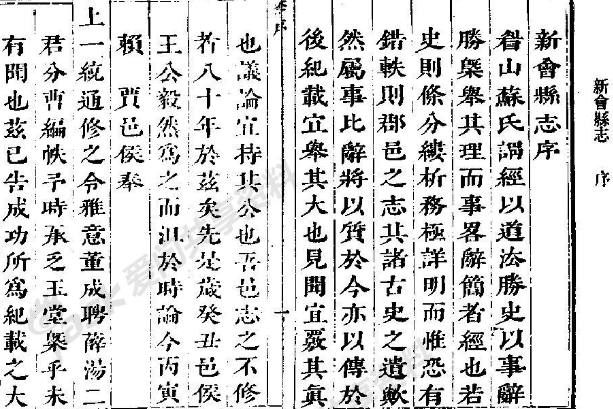 新會縣志 序
新會縣志序
眉山蘇氏謂經以道法勝史以事辭
勝槩舉其理而事畧辭簡者經也若
史則條分縷析務極詳明而惟恐有
錯軼則郡邑之志其諸古史之遺歟
然屬事比辭將以質於今亦以傳於
後紀載宜舉其大也見聞宜覈其眞
也議論宜持其公也吾邑志之不修
者八十年於茲矣先是歲癸丑邑侯
王公毅然爲之而沮於時論今丙寅
賴 賈邑侯奉
上一統通修之令雅意董成聘薛湯二
君分曹編帙予時承乏玉堂槩乎未
有聞也茲已告成功所爲紀載之大